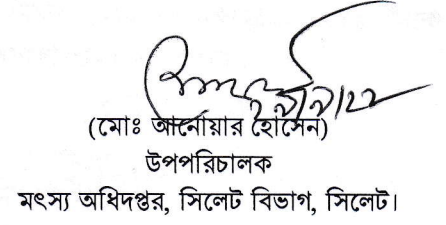 (মোঃ আনোয়ার হোসেন)
উপপরিচালক
মৎস্য অধিদপ্তর, সিলেট বিভাগ, সিলেট।